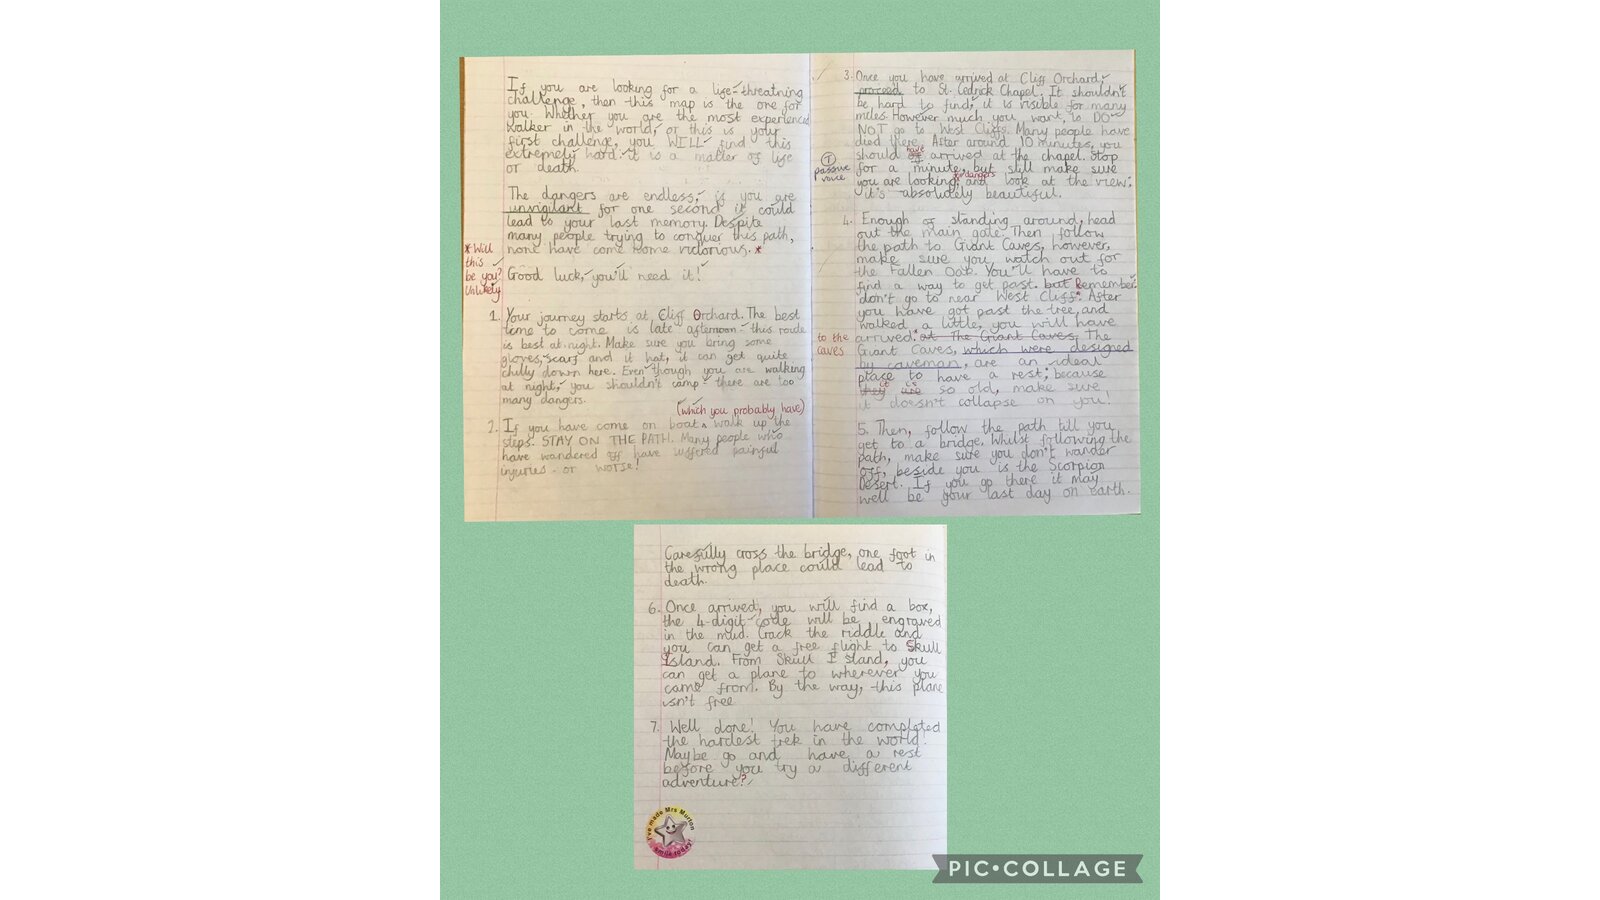 If you are looking for a life-threatning
challenge, then this map is the one for
you. Whether you are the most experienced
walker in the world, or this is your
first challenge, you WILL find this
extremely hard: it is a matter of life
or death.
The dangers are endless, if you are
unvigilant for one second it could
lead to your last memory. Despite
many people trying to conquer this path,
none have come home victorious. *
* Will
this
be you?
Unlikely
Good luck, you'll need it!
1. Your journey starts at Cliff Orchard. The best
time to come is late afternoon - this route
is best at night. Make sure you bring some
gloves, scarf and it hat, it can get quite
chilly down here. Even though you are walking
at night, you shouldn't camp - there are too
many dangers.
(which you probably have)
2. If you have come on boat, walk up the
steps. STAY ON THE PATH. Many people who
have wandered off have suffered painful
injuries - or worse!
3. Once you have arrived at Cliff Orchard,
proceed to St. Cedrick Chapel. It shouldn't
be hard to find, it is visible for many
miles. However much you want, to DO
NOT go to West Cliffs. Many people have
died there. After around 10 minutes, you
should have arrived at the chapel. Stop
for a minute, but still make sure
you are looking for dangers and look at the view:
it's absolutely beautiful.
T
passive
voice
4. Enough of standing around, head
out the main gate. Then follow
the path to Giant Caves, however,
make sure you watch out for
the Fallen Oak. You'll have to
find a way to get past. but Remember
don't go to near West Cliffs. After
you have got past the tree, and
walked a little, you will have
to the
caves
arrived.* at The Giant Caves. The
Giant Caves, which were designed
by caveman, are an ideal
place to have a rest; because
they it are is so old, make sure
it doesn't collapse on you!
5. Then, follow the path till you
get to a bridge. Whilst following the
path, make sure you don't wander
off, beside you is the Scorpion
Desert. If you go there it may
well be your last day on earth.
Carefully cross the bridge, one foot in
the wrong place could lead to
death.
6. Once arrived, you will find a box,
the 4-digit code will be engraved
in the mud. Crack the riddle and
you can get a free flight to Skull
Island. From Skull Island, you
can get a plane to wherever you
came from. By the way, this plane
isn't free
7. Well done! You have completed
the hardest trek in the world!
Maybe go and have a rest
before you try a different
adventure?
I've made Mrs Murton
smile today!
PIC•COLLAGE